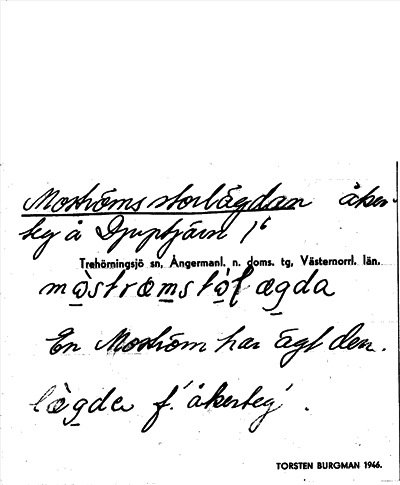 Moströms storlägdan åker-
teg å Djuptjärn 1⁶
Trehörningsjö sn, Ångermanl. n. doms. tg, Västernorrl. län.
mȯ̲̀strœm̲stȯ̲̀ɭægda
En Moström har ägt den.
lœ̀gda f. 'åkerteg'.
TORSTEN BURGMAN 1946.